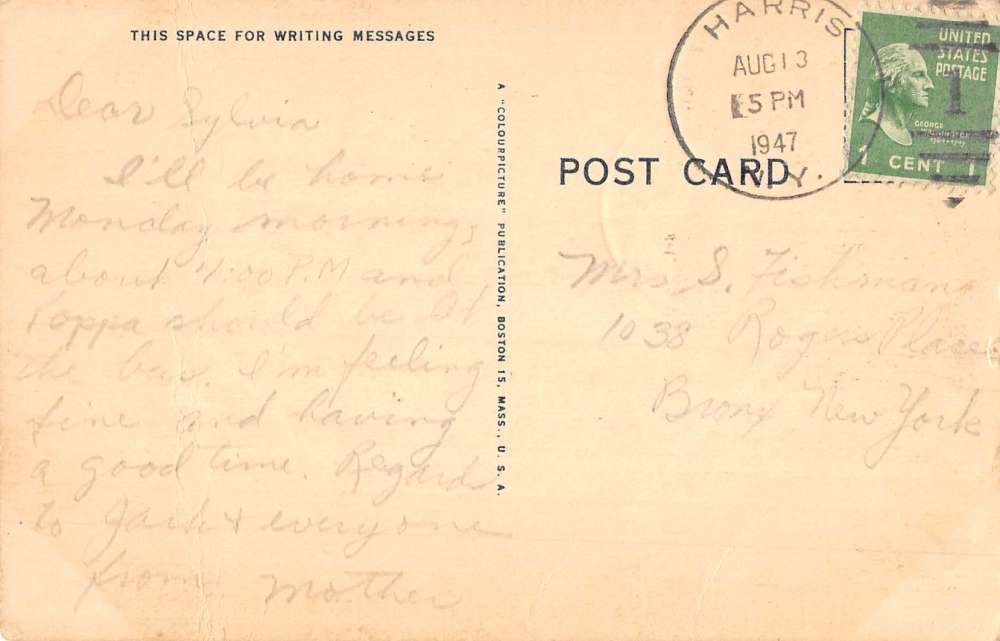 THIS SPACE FOR WRITING MESSAGES
Dear Sylvia
I'll be home
Monday morning,
about 7:00 P.M and
Poppa should be at
the bus. I'm feeling
fine and having
a good time. Regards
to Jack & everyone
from Mother
A "COLOURPICTURE" PUBLICATION, BOSTON 15, MASS., U. S. A.
POST CARD
HARRIS
AUG 13
5 PM
1947
N.Y.
UNITED
STATES
POSTAGE
1
GEORGE
WASHINGTON
1 CENT 1
Mrs S. Fishman
1038 Rogers Place
Bronx, New York